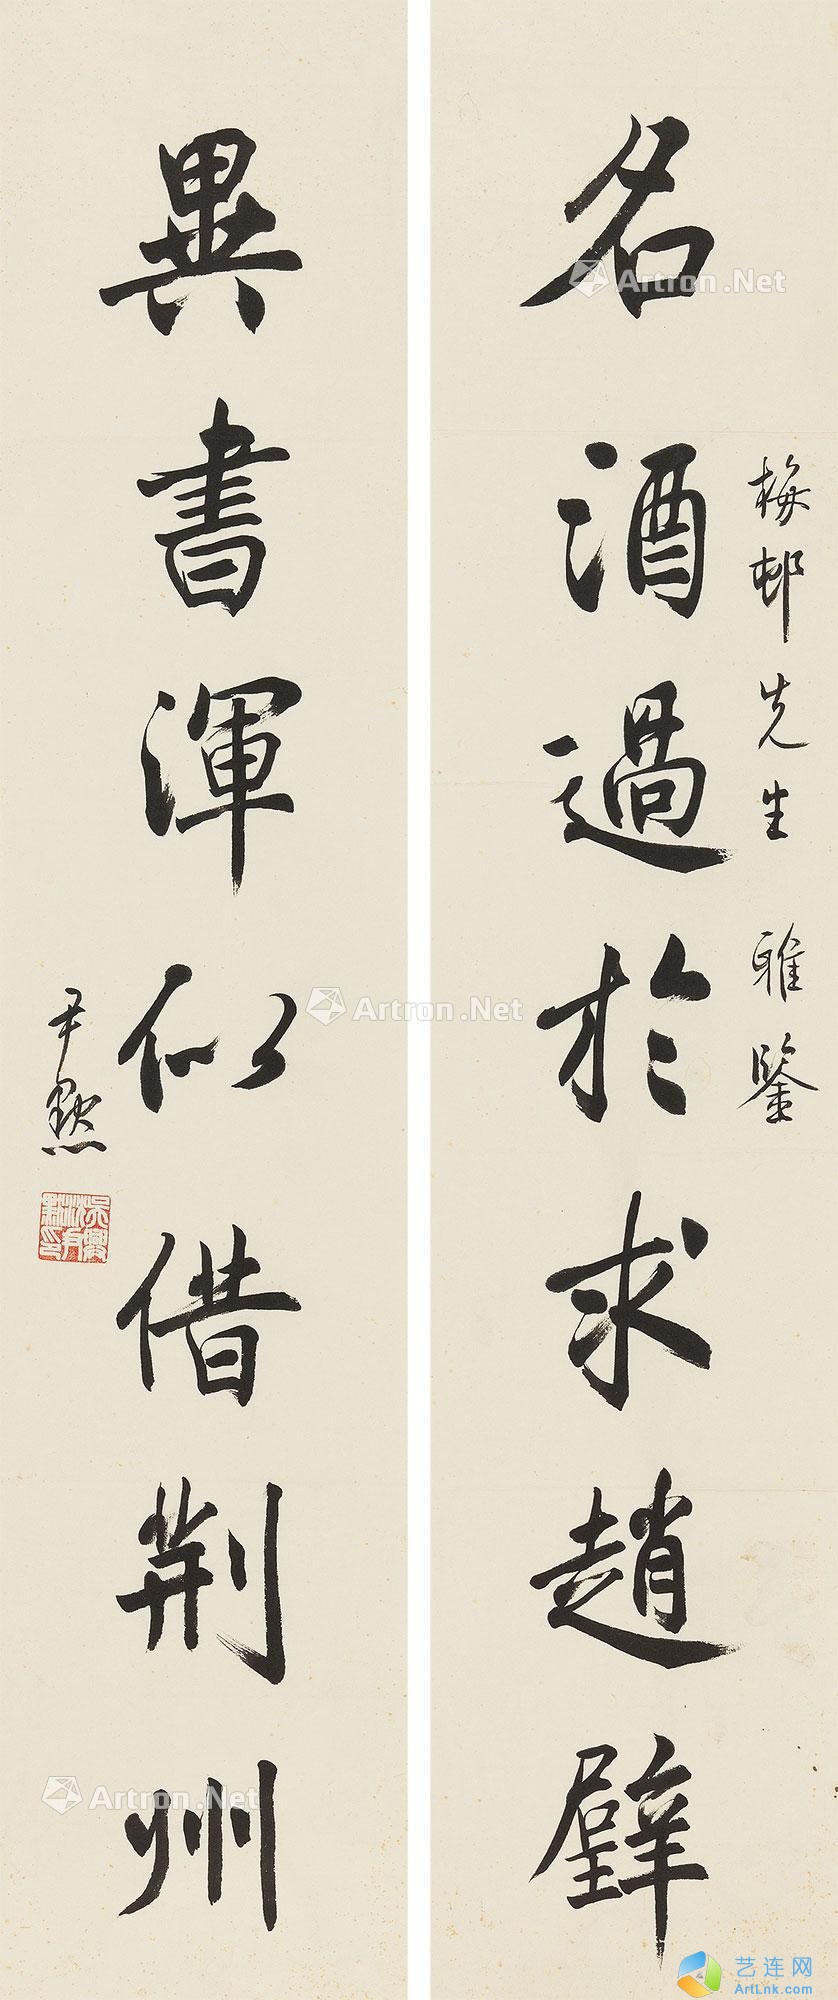 名酒過於求趙璧
梅邨先生 雅鑒
異書渾似借荆州
尹默
吳興沈尹默印
Artron.Net
Artron.Net
Artron.Net
艺连网
ArtLnk.com